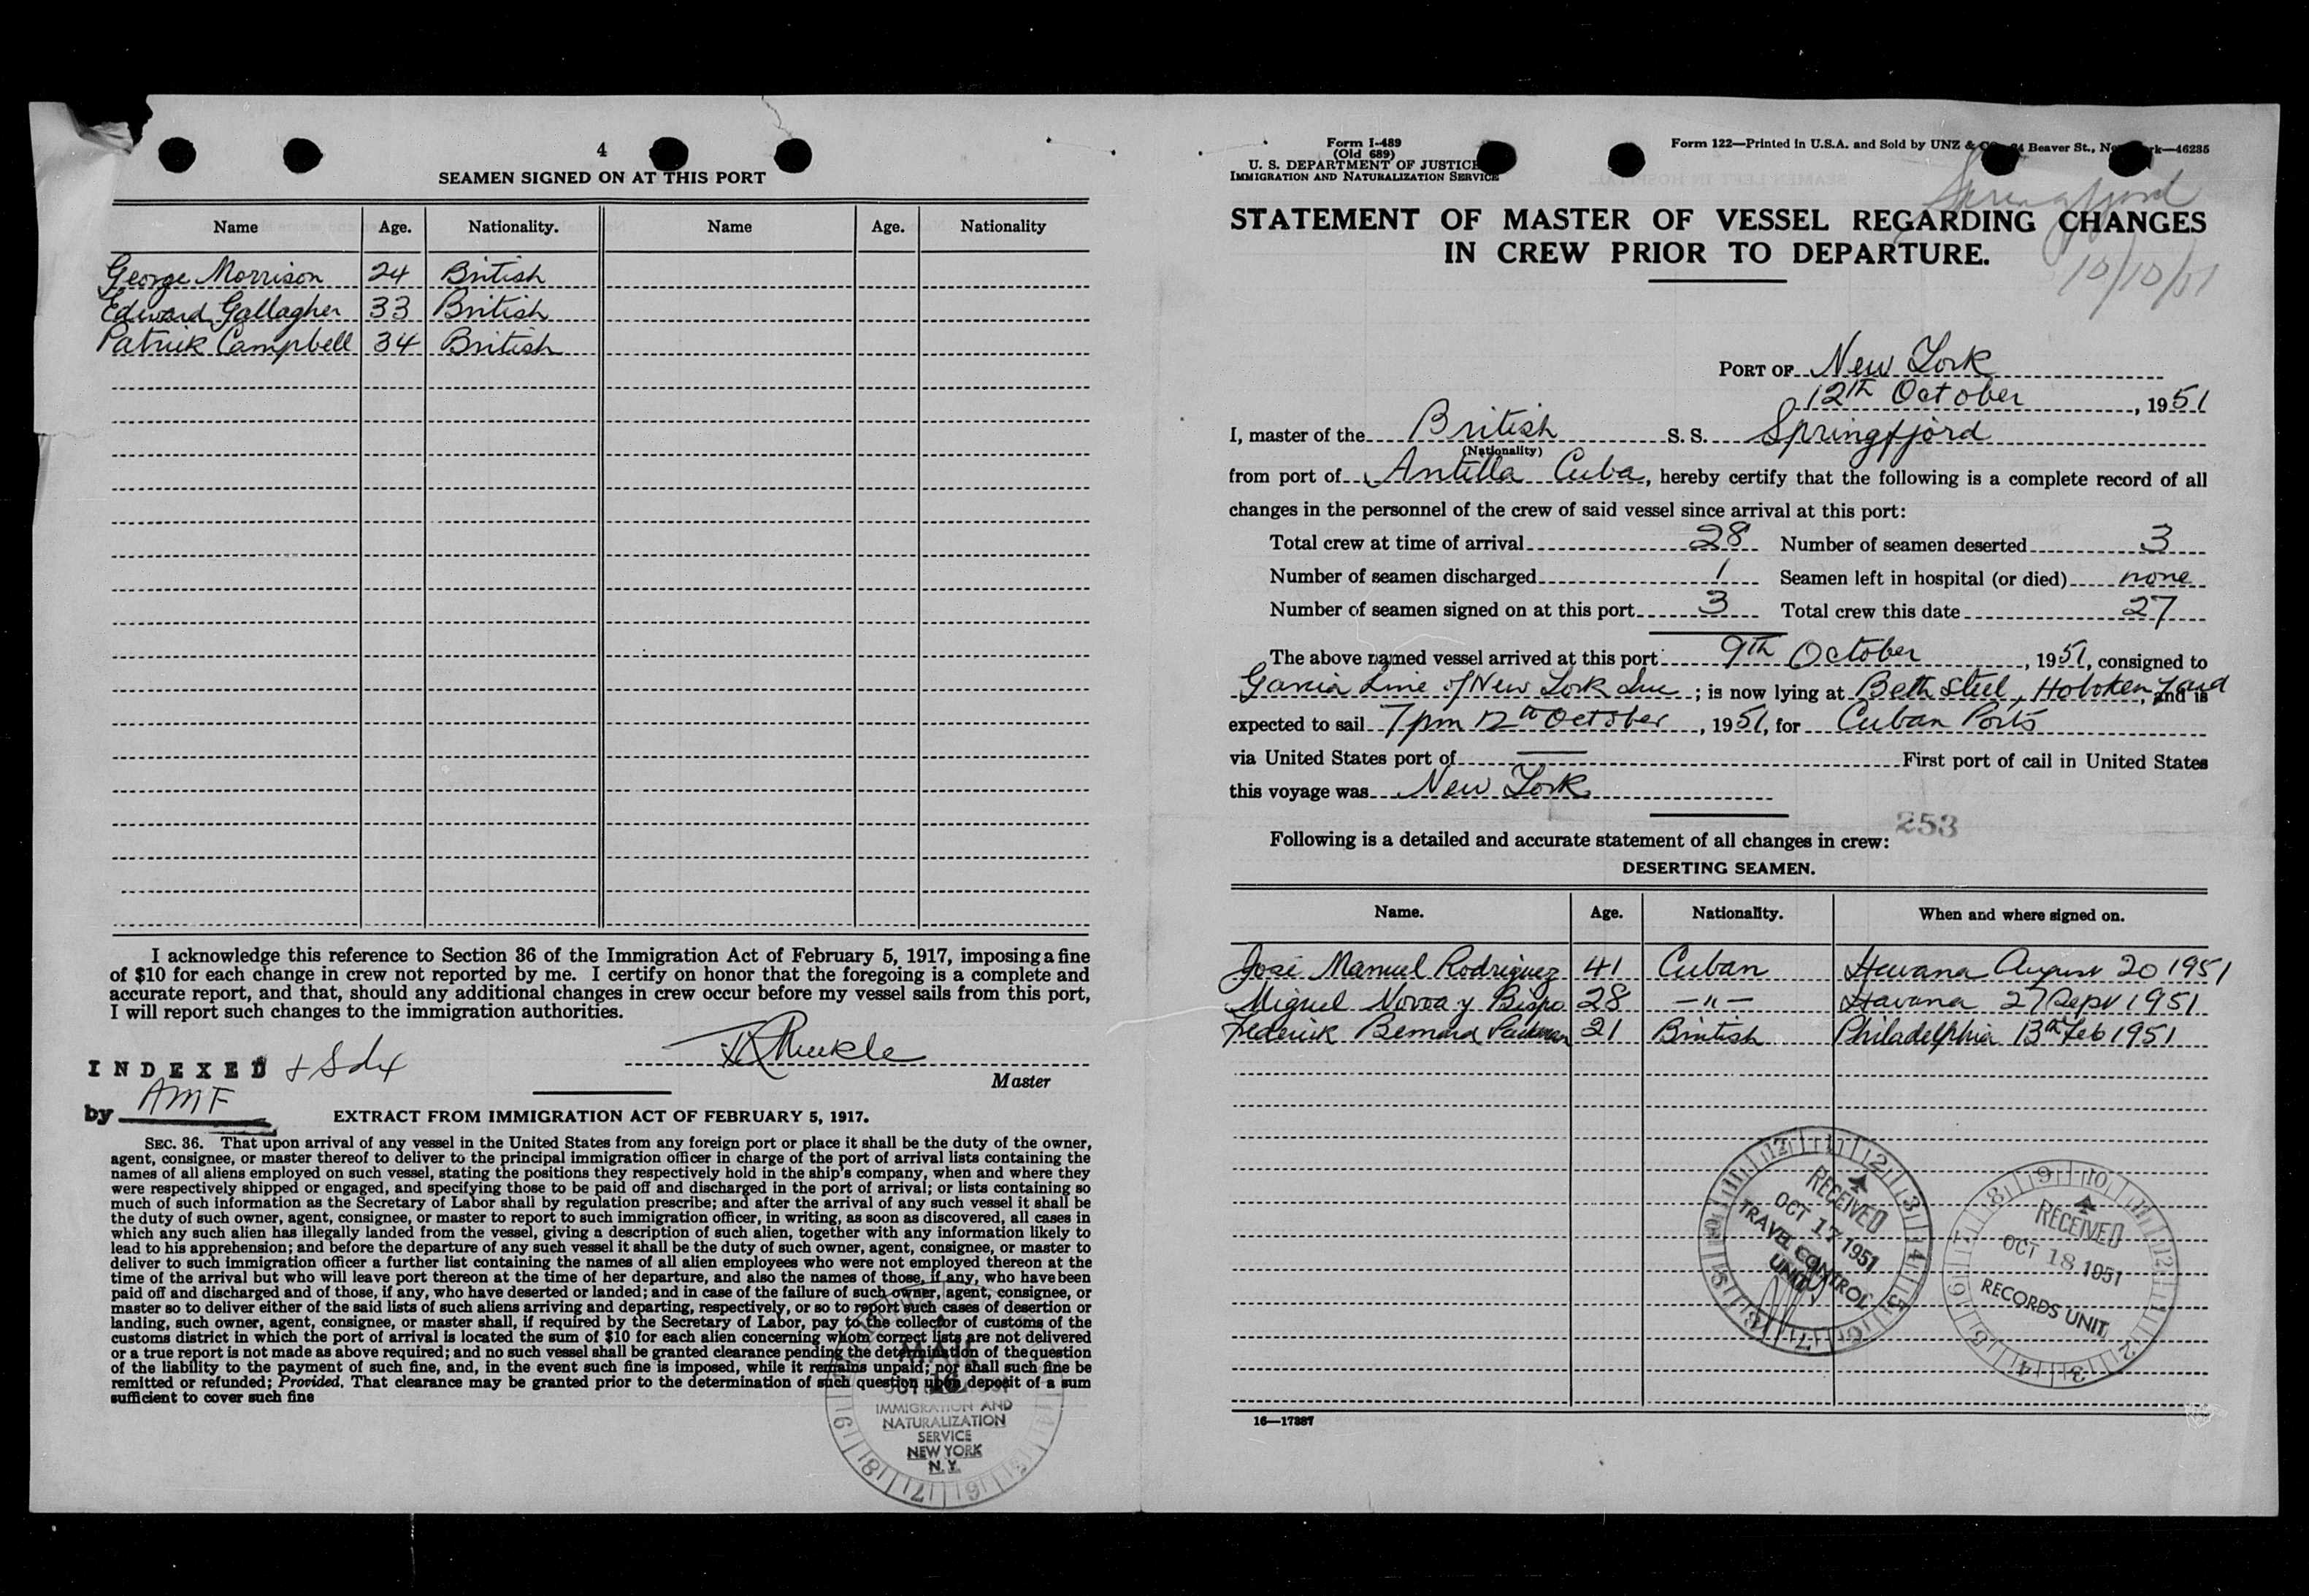 4
SEAMEN SIGNED ON AT THIS PORT
Name Age. Nationality. Name Age. Nationality
George Morrison 24 British
Edward Gallagher 33 British
Patrick Campbell 34 British
I acknowledge this reference to Section 36 of the Immigration Act of February 5, 1917, imposing a fine
of $10 for each change in crew not reported by me. I certify on honor that the foregoing is a complete and
accurate report, and that, should any additional changes in crew occur before my vessel sails from this port,
I will report such changes to the immigration authorities.
Master
INDEXED
by AMF
EXTRACT FROM IMMIGRATION ACT OF FEBRUARY 5, 1917.
SEC. 36. That upon arrival of any vessel in the United States from any foreign port or place it shall be the duty of the owner,
agent, consignee, or master thereof to deliver to the principal immigration officer in charge of the port of arrival lists containing the
names of all aliens employed on such vessel, stating the positions they respectively hold in the ship's company, when and where they
were respectively shipped or engaged, and specifying those to be paid off and discharged in the port of arrival; or lists containing so
much of such information as the Secretary of Labor shall by regulation prescribe; and after the arrival of any such vessel it shall be
the duty of such owner, agent, consignee, or master to report to such immigration officer, in writing, as soon as discovered, all cases in
which any such alien has illegally landed from the vessel, giving a description of such alien, together with any information likely to
lead to his apprehension; and before the departure of any such vessel it shall be the duty of such owner, agent, consignee, or master to
deliver to such immigration officer a further list containing the names of all alien employees who were not employed thereon at the
time of the arrival but who will leave port thereon at the time of her departure, and also the names of those, if any, who have been
paid off and discharged and of those, if any, who have deserted or landed; and in case of the failure of such owner, agent, consignee, or
master so to deliver either of the said lists of such aliens arriving and departing, respectively, or so to report such cases of desertion or
landing, such owner, agent, consignee, or master shall, if required by the Secretary of Labor, pay to the collector of customs of the
customs district in which the port of arrival is located the sum of $10 for each alien concerning whom correct lists are not delivered
or a true report is not made as above required; and no such vessel shall be granted clearance pending the determination of the question
of the liability to the payment of such fine, and, in the event such fine is imposed, while it remains unpaid; nor shall such fine be
remitted or refunded; Provided, That clearance may be granted prior to the determination of such question upon deposit of a sum
sufficient to cover such fine
MAIL
16
IMMIGRATION AND
NATURALIZATION
SERVICE
NEW YORK
N.Y.
Form I-489
(Old 689)
U. S. DEPARTMENT OF JUSTICE
IMMIGRATION AND NATURALIZATION SERVICE
Form 122—Printed in U.S.A. and Sold by UNZ & Beaver St., 46235
Springfjord
10/10/51
STATEMENT OF MASTER OF VESSEL REGARDING CHANGES
IN CREW PRIOR TO DEPARTURE.
PORT OF New York
12th October, 1951
I, master of the British S. S. Springfjord
(Nationality)
from port of Antilla Cuba, hereby certify that the following is a complete record of all
changes in the personnel of the crew of said vessel since arrival at this port:
Total crew at time of arrival 28 Number of seamen deserted 3
Number of seamen discharged 1 Seamen left in hospital (or died) none
Number of seamen signed on at this port 3 Total crew this date 27
The above named vessel arrived at this port 9th October, 1951, consigned to
Garcia Line of New York Inc; is now lying at Beth Steel, Hoboken Yard, and is
expected to sail 7pm 12th October, 1951, for Cuban Ports
via United States port of — First port of call in United States
this voyage was New York
253
Following is a detailed and accurate statement of all changes in crew:
DESERTING SEAMEN.
Name. Age. Nationality. When and where signed on.
José Manuel Rodriguez 41 Cuban Havana August 20 1951
Miguel Novoa y 28 —"— Havana 27 Sept 1951
Frederick Bernard 21 British Philadelphia 13th Feb 1951
RECEIVED
OCT 17 1951
TRAVEL CONTROL
UNIT
RECEIVED
OCT 18 1951
RECORDS UNIT
16—17387